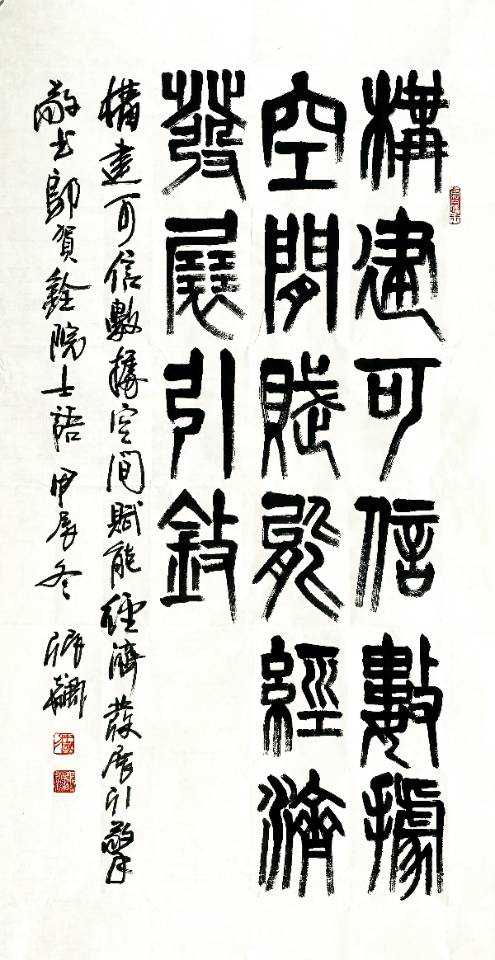 構建可信數據
空間賦能經濟
發展引擎
構建可信數據空間賦能經濟發展引擎
敬书鄔賀銓院士語 甲辰冬